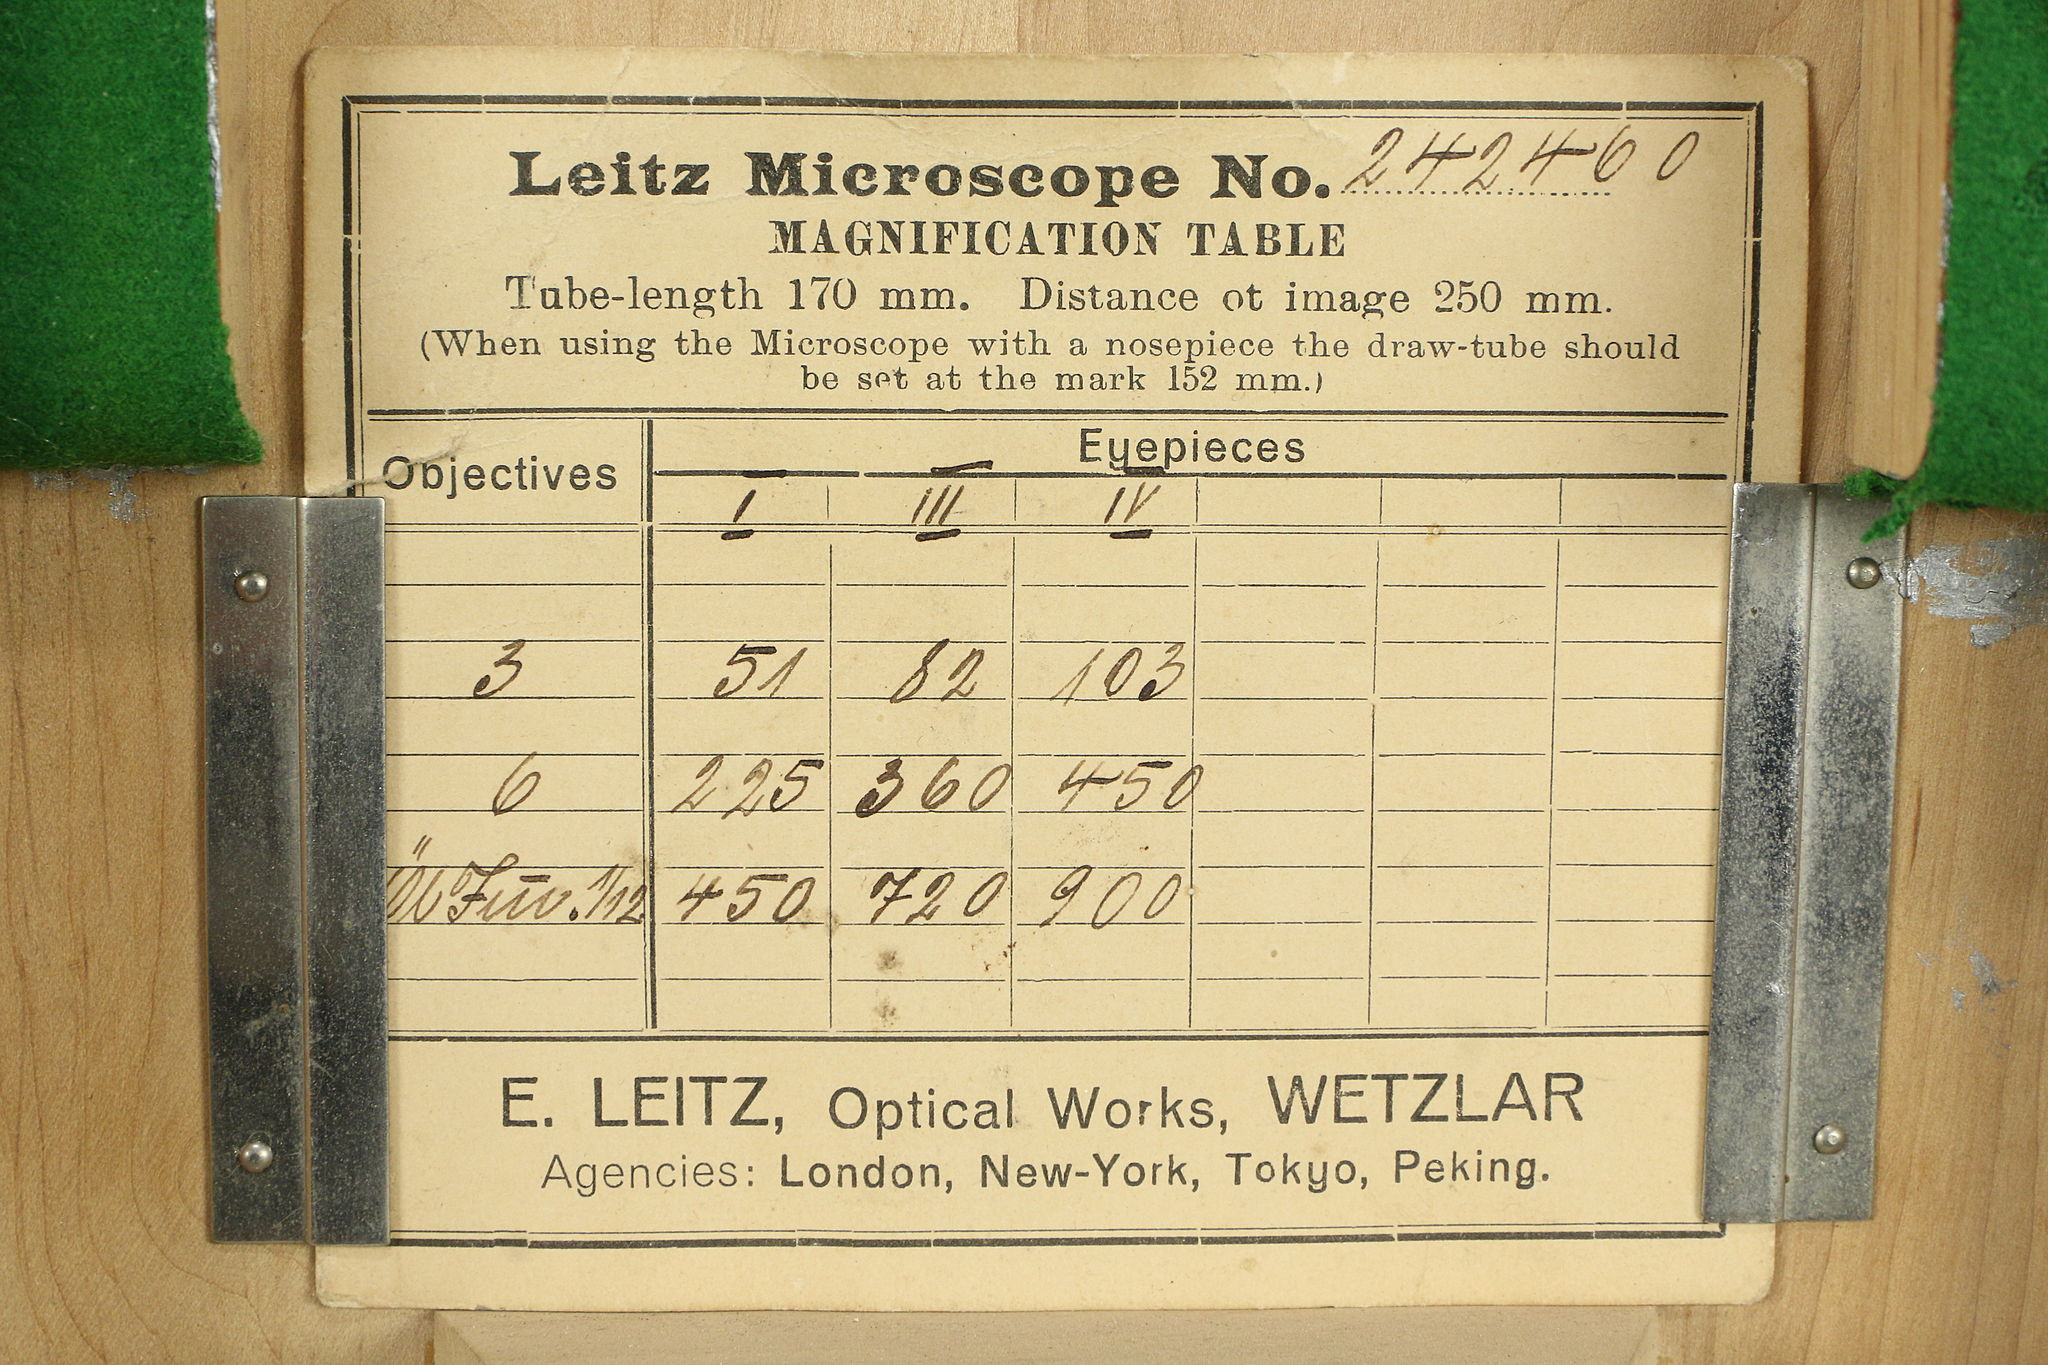 Leitz Microscope No. 242460
MAGNIFICATION TABLE
Tube-length 170 mm. Distance of image 250 mm.
(When using the Microscope with a nosepiece the draw-tube should
be set at the mark 152 mm.)
Eyepieces
Objectives
I III IV
3 51 82 103
6 225 360 450
Öl Imm. 1/12 450 720 900
E. LEITZ, Optical Works, WETZLAR
Agencies: London, New-York, Tokyo, Peking.